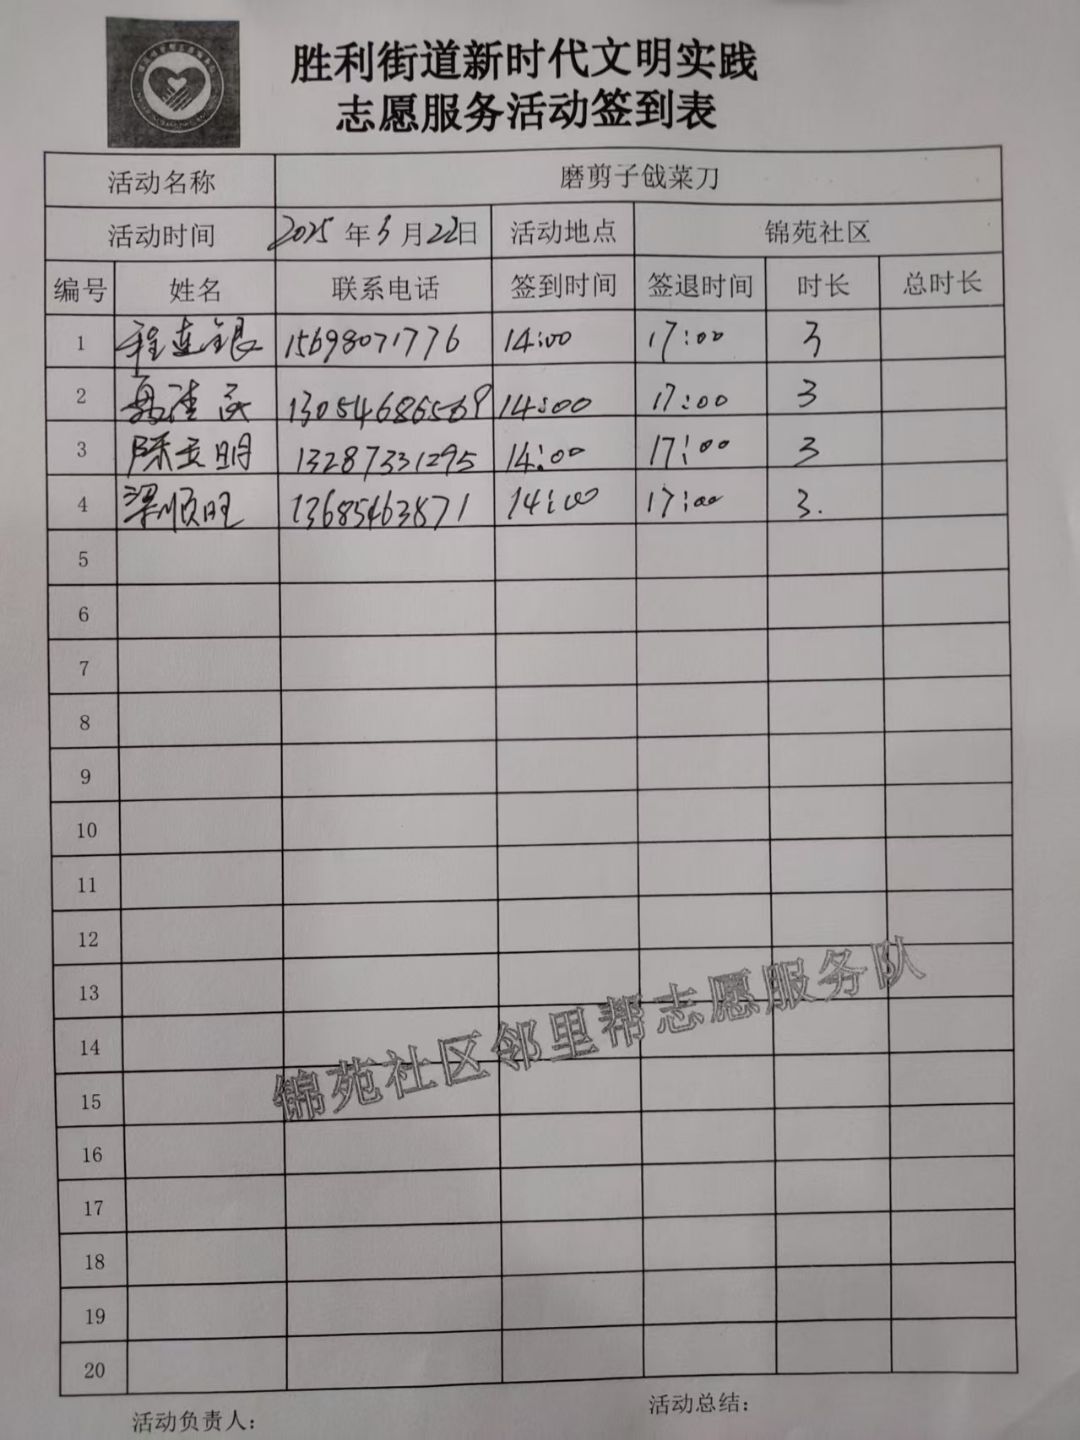 胜利街道新时代文明实践
志愿服务活动签到表
活动名称 磨剪子戗菜刀
活动时间 2025年3月22日 活动地点 锦苑社区
编号 姓名 联系电话 签到时间 签退时间 时长 总时长
1 程连银 15698071776 14:00 17:00 3
2 13054686569 14:00 17:00 3
3 陈玉明 13287331295 14:00 17:00 3
4 梁顺旺 13685463871 14:00 17:00 3.
5
6
7
8
9
10
11
12
13
14
15
16
17
18
19
20
锦苑社区邻里帮志愿服务队
活动负责人: 活动总结: